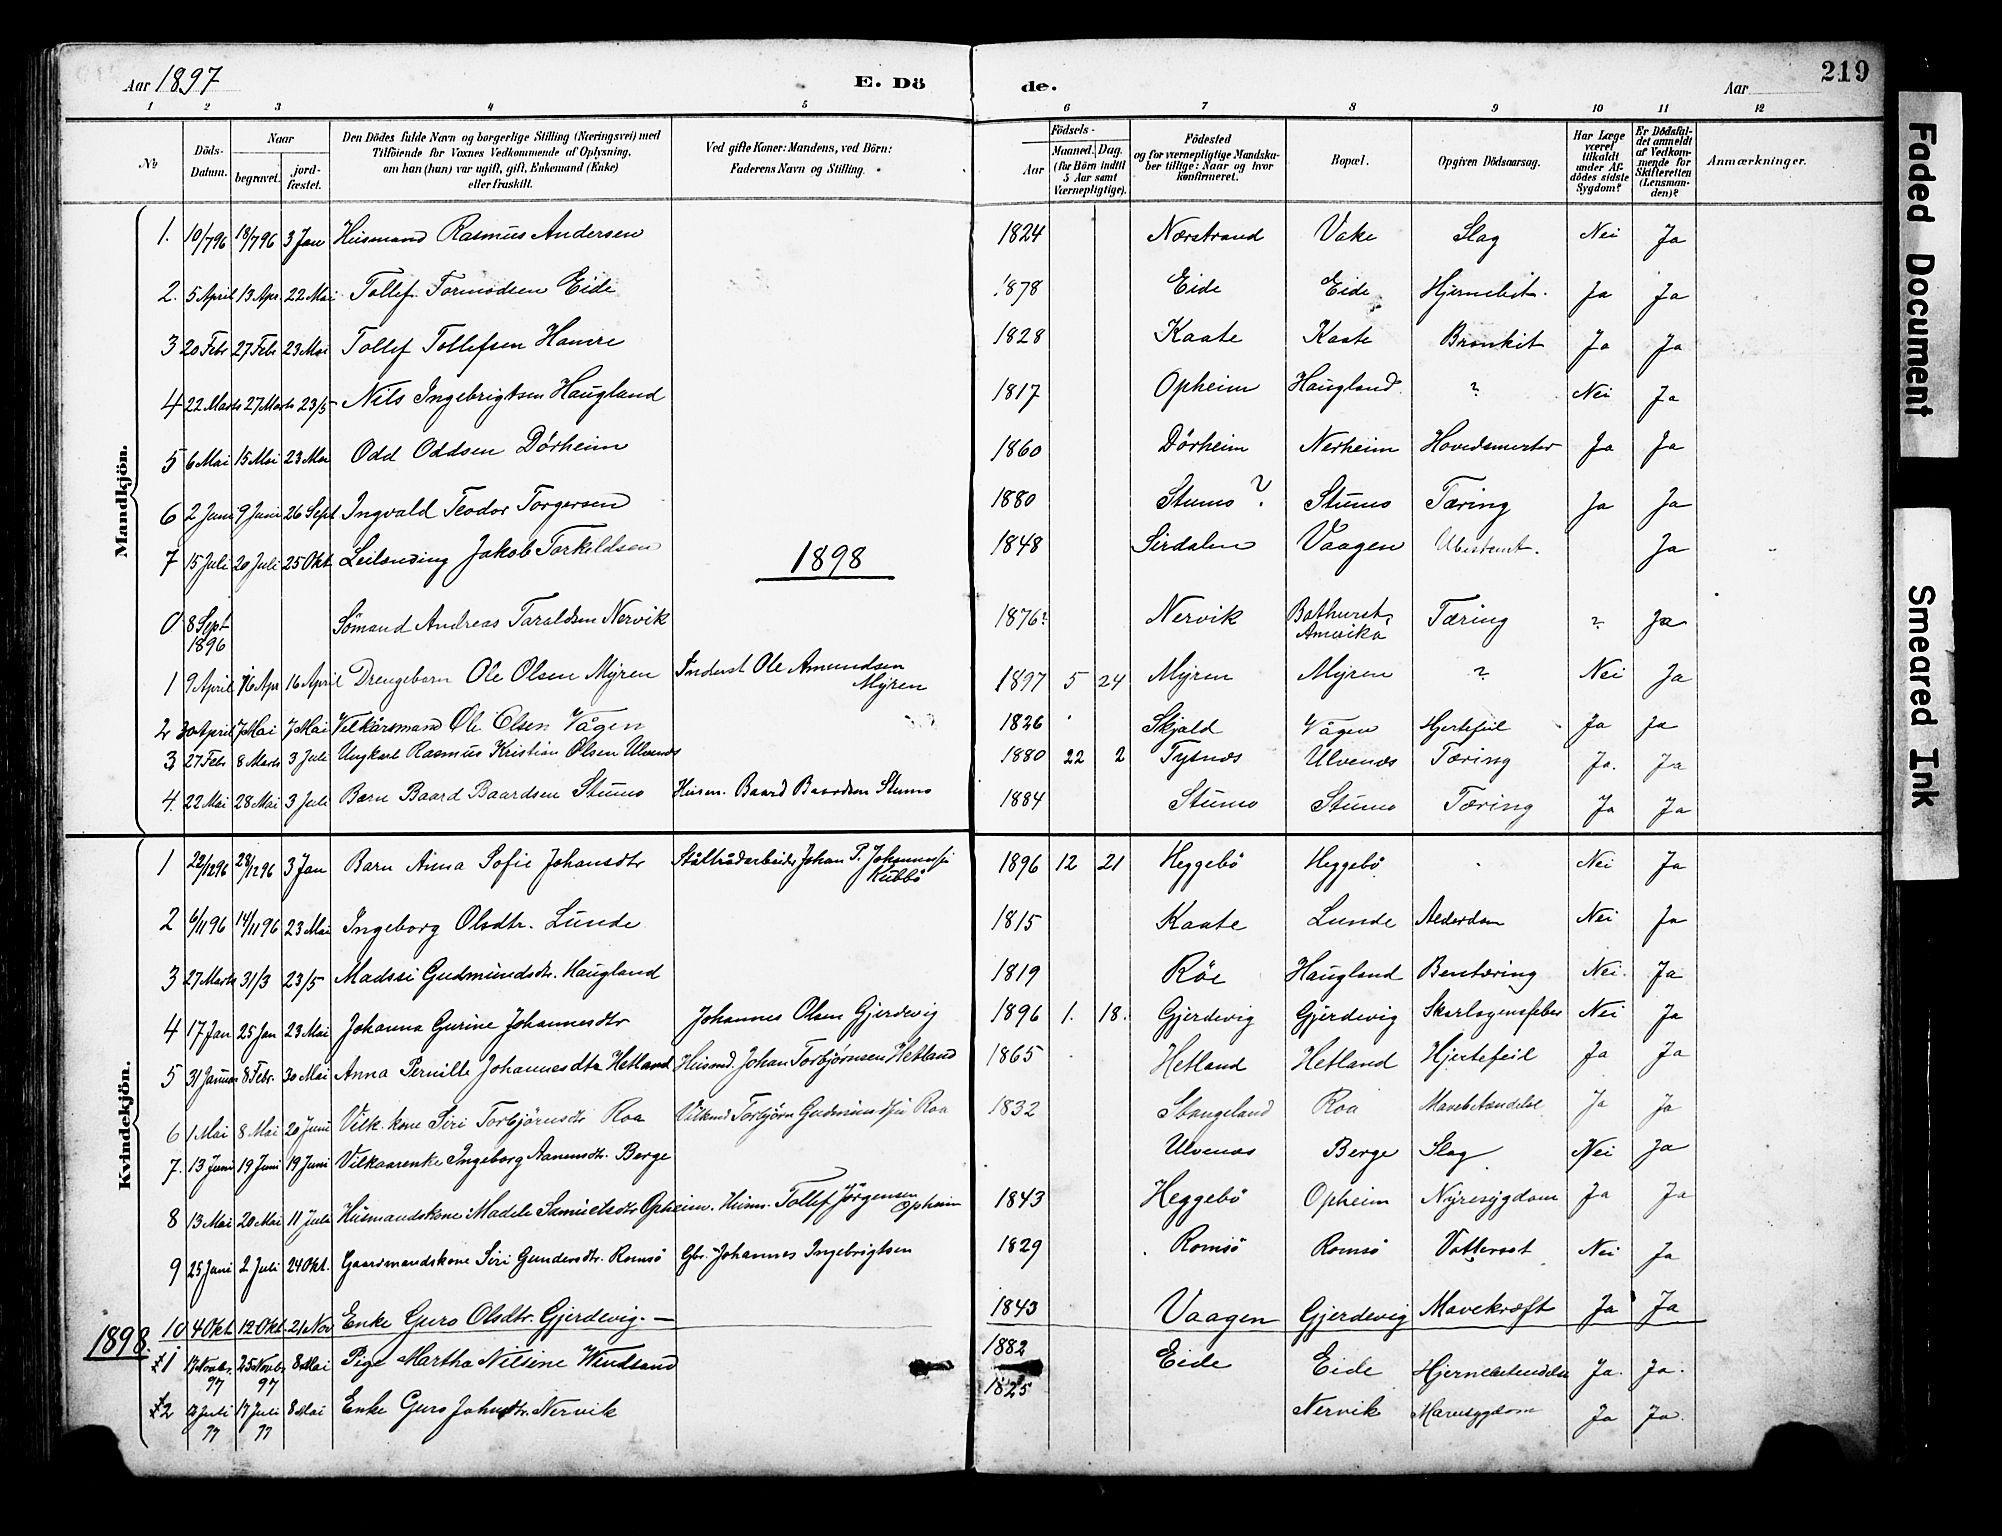 Aar 1897
E. Dö
de.
Aar
219
1 2 3 4 5 6 7 8 9 10 11 12
No
Döds-Datum.
Naar
begravet.
jord-fæstet.
Den Dödes fulde Navn og borgerlige Stilling (Næringsvei) med
Tilföiende for Voxnes Vedkommende af Oplysning,
om han (hun) var ugift, gift, Enkemand (Enke)
eller fraskilt.
Ved gifte Koner: Mandens, ved Börn:
Faderens Navn og Stilling.
Födsels-
Aar
Maaned. Dag.
(for Börn indtil
5 Aar samt
Værnepligtige).
Födested
og for værnepligtige Mandska-
ber tillige: Naar og hvor
konfirmeret.
Bopæl.
Opgiven Dödsaarsag.
Har Læge
været
tilkaldt
under Af-
dödes sidste
Sygdom?
Er Dödsfal-
det anmeldt
af Vedkom-
mende for
Skifteretten
(Lensman-
den)?
Anmærkninger.
Mandkjön.
1. 10/7 96 18/7 96 3 Jan Husmand Rasmus Andersen 1824 Nærstrand Vake Slag Nei Ja
2. 5 April 13 Apr 22 Mai Tollef Tormodsen Eide 1878 Eide Eide Ja Ja
3 20 Febr 27 Feb 23 Mai Tollef Tollefsen Hamre 1828 Kaate Kaate Bronkit Ja Ja
4 22 Marts 27 Marts 23/5 Nils Ingebrigtsen Haugland 1817 Opheim Haugland ? Nei Ja
5 6 Mai 15 Mai 23 Mai Odd Oddsen Dörheim 1860 Dörheim Nerheim Hovedsmerter Ja Ja
6 2 Juni 9 Juni 26 Sept Ingvald Teodor Torgersen 1880 Stumo ? Stumo Tæring Ja Ja
7 15 Juli 20 Juli 25 Okt Leilending Jakob Torkildsen 1848 Sirdalen Vaagen Ubestemt. Ja
1898
0 8 Sept 1896 Sömand Andreas Taraldsen Nervik 1876? Nervik Bathurst, Amerika Tæring ? Ja
1 9 April 16 Apr 16 April Drengebarn Ole Olsen Myren Inderst Ole Amundsen Myren 1897 5 24 Myren Myren ? Nei Ja
2 30 April 7 Mai 7 Mai Vilkårsmand Ole Olsen Vågen 1826 Skjold Vågen Hjertefeil Ja Ja
3 27 Feb 8 Marts 3 Juli Ungkarl Rasmus Kristian Olsen Ulvenes 1880 22 2 Tysnæs Ulvenes Tæring Ja. Ja
4. 22 Mai 28 Mai 3 Juli Barn Baard Baardsen Stumo Husm. Baard Baardsen Stumo 1884 Stumo Stumo Tæring Ja Ja
Kvindekjön.
1 22/12 96 28/12 96 3 Jan Barn Anna Sofie Johansdtr Ståltrådarbeider Johan P. Kubbö 1896 12 21 Heggebö Heggebö Nei Ja
2 6/11 96 14/11 96 23 Mai Ingeborg Olsdtr. Lunde 1815 Kaate Lunde Alderdom Nei Ja
3 27 Marts 31/3 23/5 Madssi Gudmundsdtr. Haugland 1819 Röe Haugland Bentæring Nei. Ja
4 17 Jan 25 Jan 23 Mai Johanna Gurine Johannesdtr Johannes Olsen Gjerdevig 1896 1. 18. Gjerdevig Gjerdevig Skarlagensfeber Nei Ja
5 31 Januar 8 Febr. 30 Mai Anna Pernille Johannesdtr Hetland Husmd. Johan Torbjørnsen Hetland 1865 Hetland Hetland Hjertefeil Ja Ja
6 1 Mai 8 Mai 20 Juni Vilk. kone Siri Torbjörnsdtr Roa Torbjörn Roa 1832 Stangeland Roa Mavebetændelse Ja Ja
7. 13 Juni 19 Juni 19 Juni Vilkaarenke Ingeborg Aanensdtr. Berge Ulvenes Berge Slag Nei Ja
8 13 Mai 20 Mai 11 Juli Husmandskone Madele Samuelsdtr Opheim. Husm. Tollef Jörgensen Opheim 1843 Heggebö Opheim Nyresygdom Ja Ja
9 25 Juni 2 Juli 24 Okt. Gaardmandskone Siri Gundersdtr. Romsö Gbr. Johannes Ingebrigtsen 1829 Romsö Romsö Vattersot Nei Ja
10 4 Okt 12 Okt. 21 Nov Enke Guro Olsdtr. Gjerdevig.— 1843 Vaagen Gjerdevig Mavekræft Ja Ja
1898.
1 17 Novbr 97 25 Novbr 97 8 Mai Pige Martha Nilsine Windsand 1882 Eide Eide Hjernebetændelse Ja. Ja.
2 Juli 97 17 Juli 97 8 Mai Enke Guro Johnsdtr. Nervik 1825 Nervik Mavesygdom Ja Ja.
Faded Document
Smeared Ink